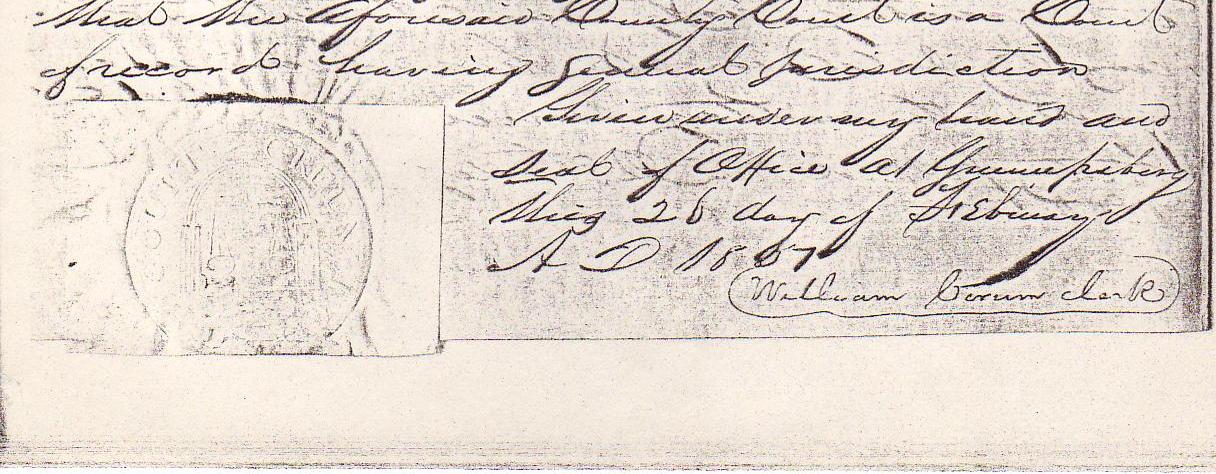 that the aforesaid County Court is a Court
of record having general jurisdiction
Given under my hand and
seal of Office at Greensburg
this 26 day of February
A D 1857
William Corum clerk
COUNTY GREEN